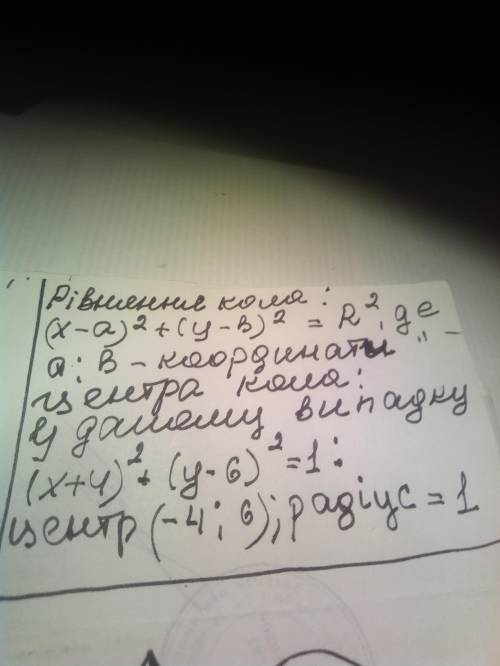 Рівняння кола:
(x-a)² + (y-в)² = R², де
a; в - координати
центра кола:
У даному випадку
(x+4)² + (y-6)² = 1:
центр (-4; 6); радіус = 1